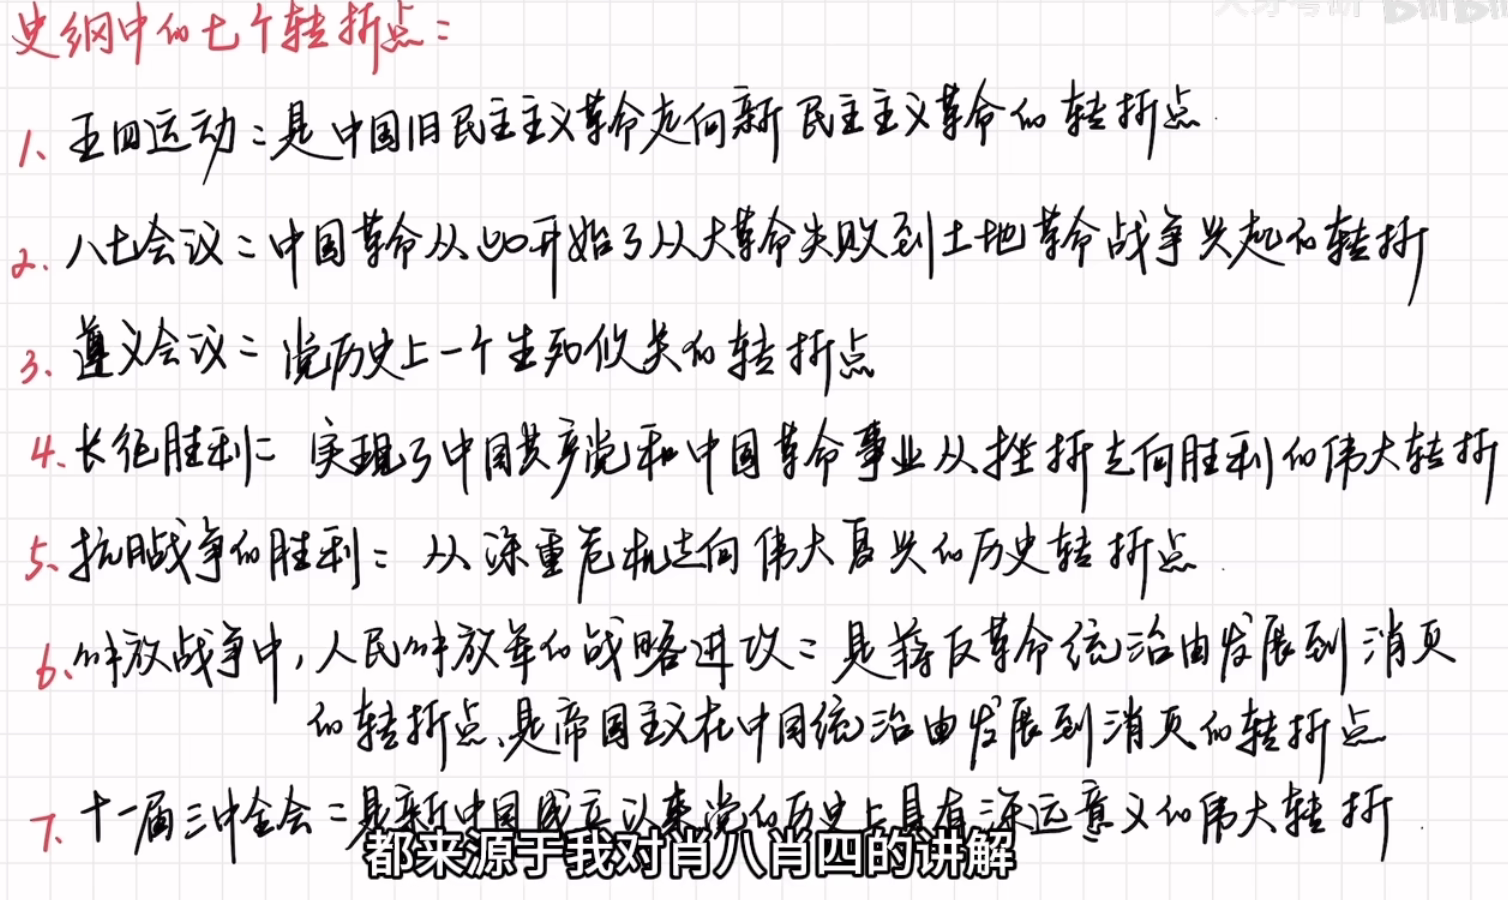 史纲中的七个转折点：
1、五四运动：是中国旧民主主义革命走向新民主主义革命的转折点
2、八七会议：中国革命从此开始了从大革命失败到土地革命战争兴起的转折
3、遵义会议：党历史上一个生死攸关的转折点
4、长征胜利：实现了中国共产党和中国革命事业从挫折走向胜利的伟大转折
5、抗日战争的胜利：从深重危机走向伟大复兴的历史转折点
6、解放战争中，人民解放军的战略进攻：是蒋反革命统治由发展到消灭
的转折点、是帝国主义在中国统治由发展到消灭的转折点
7、十一届三中全会：是新中国成立以来党的历史上具有深远意义的伟大转折
都来源于我对肖八肖四的讲解